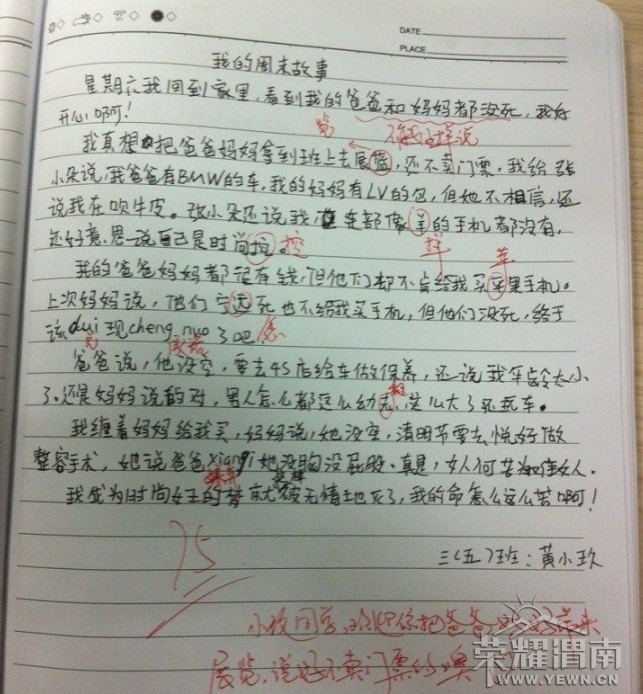 DATE
PLACE
我的周末故事
星期六我回到家里，看到我的爸爸和妈妈都没死，我好
开心啊！
览 不能这样说
我真想把爸爸妈妈拿到班上去展篮，还不卖门票，我给张
小朵说，我爸爸有BMW的车，我的妈妈有LV的包，但她不相信，还
说我在吹牛皮。张小朵还说我连都像的手机都没有，
还好意思说自己是时尚控。 控 样 苹
我的爸爸妈妈都很有钱，但他们却不肯给我买平果手机。
上次妈妈说，他们宁远死也不给我买手机，但他们没死，终于
该dui现chengnuo了吧 愿
兑 承诺
爸爸说，他没空，要去4S店给车做保养，还说我年龄太小
了。还是妈妈说的对，男人怎么都这么幼，这么大了还玩车。
我缠着妈妈给我买，妈妈说，她没空，清明节要去悦好做
整容手术，她说爸爸xianqi她没胸没屁股。真是，女人何苦为难女人。
嫌弃
我成为时尚女王的梦就被无情地灭了，我的命怎么这么苦啊！
三（五）班：黄小玖
75
小玖同学，你把爸爸
展览，说好不卖门票的噢
荣耀渭南
WWW.YEWN.CN